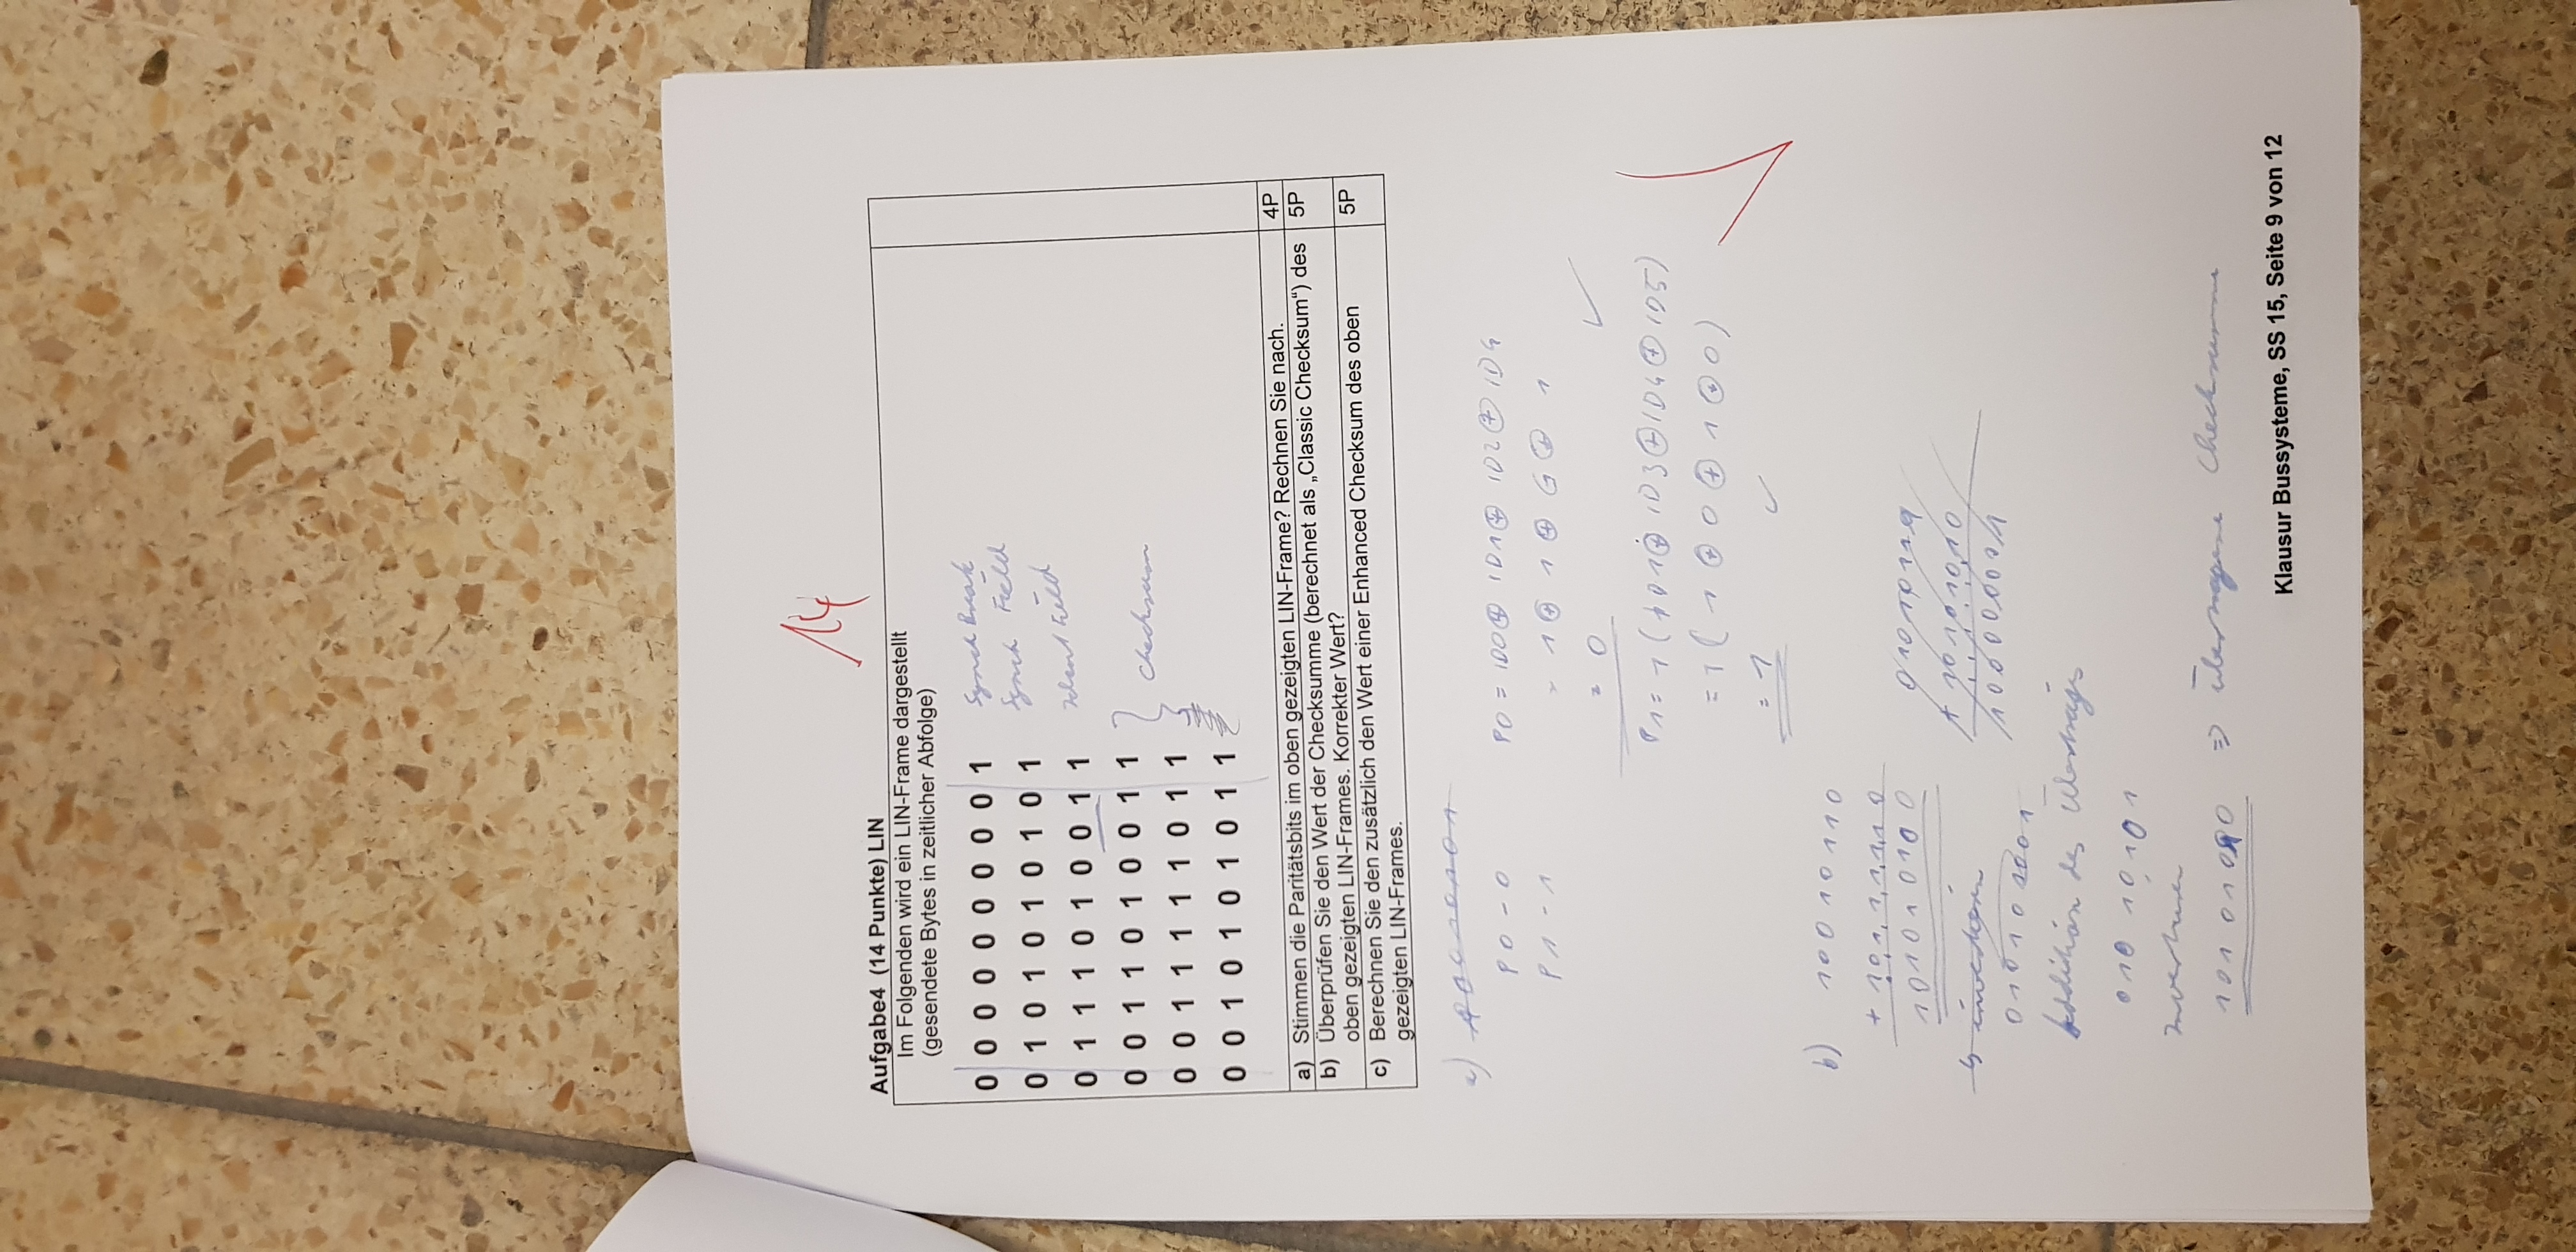 14
Aufgabe4 (14 Punkte) LIN
Im Folgenden wird ein LIN-Frame dargestellt
(gesendete Bytes in zeitlicher Abfolge)
0 0 0 0 0 0 0 0 0 1 Synch Break
0 1 0 1 0 1 0 1 0 1 Synch Field
0 1 1 1 0 1 0 0 1 1 Ident Field
0 0 1 1 0 1 0 0 1 1
Checksum
0 0 1 1 1 1 1 0 1 1
0 0 1 0 1 0 1 0 1 1
a) Stimmen die Paritätsbits im oben gezeigten LIN-Frame? Rechnen Sie nach. 4P
b) Überprüfen Sie den Wert der Checksumme (berechnet als „Classic Checksum“) des 5P
oben gezeigten LIN-Frames. Korrekter Wert?
c) Berechnen Sie den zusätzlich den Wert einer Enhanced Checksum des oben 5P
gezeigten LIN-Frames.
a)
P0 - 0 P0 = ID0 ⊕ ID1 ⊕ ID2 ⊕ ID4
P1 - 1 = 1 ⊕ 1 ⊕ ⊕ 1
= 0 ✓
P1 = 1 (ID1 ⊕ ID3 ⊕ ID4 ⊕ ID5)
= 1 ( 1 ⊕ 0 ⊕ 1 ⊕ 0 )
= 1 ✓
b) 10010110
+ 10111110
101010100
invertieren
Addition des Übertrags
01010101
Invertieren
10101010 => übertragene Checksumme
Klausur Bussysteme, SS 15, Seite 9 von 12